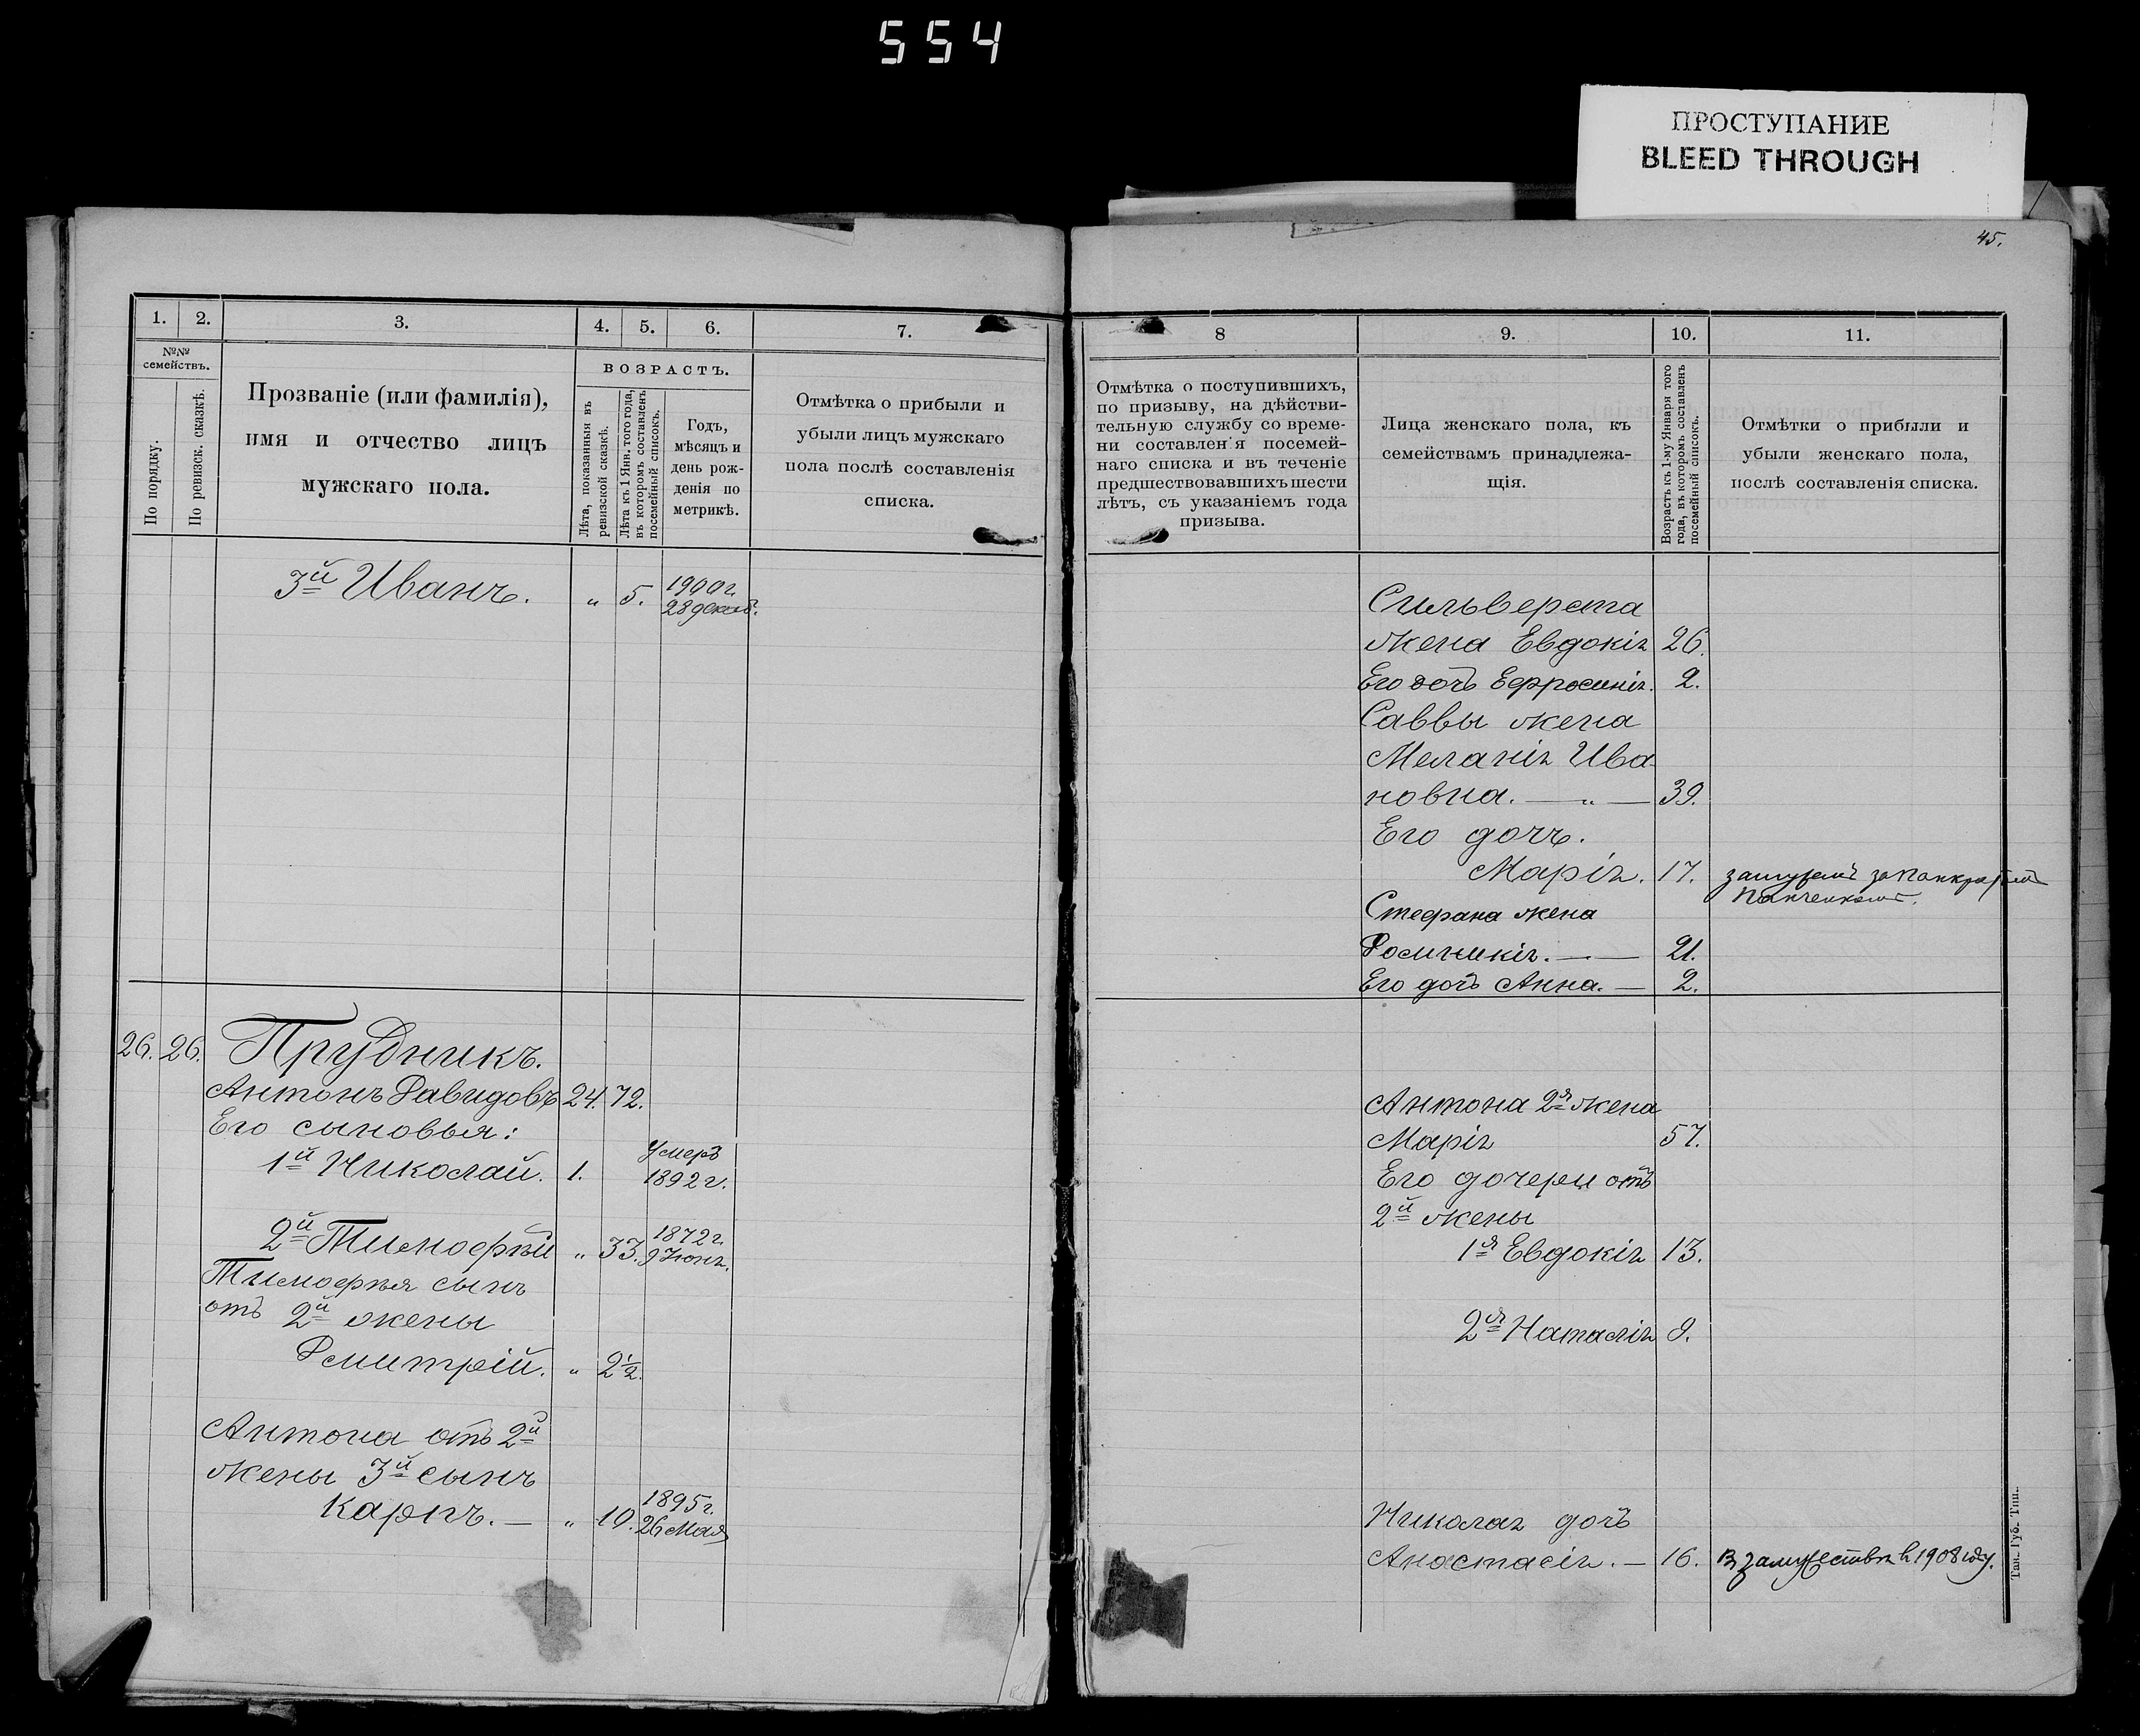 554
ПРОСТУПАНИЕ
BLEED THROUGH
45.
1.
2.
3.
4.
5.
6.
7.
№№ семействъ.
По порядку.
По ревизск. сказкѣ.
Прозваніе (или фамилія),
имя и отчество лицъ
мужскаго пола.
ВОЗРАСТЪ.
Лѣта, показанныя въ
ревизской сказкѣ.
Лѣта къ 1 Янв. того года,
въ которомъ составленъ
посемейный списокъ.
Годъ,
мѣсяцъ и
день рож-
денія по
метрикѣ.
Отмѣтка о прибыли и
убыли лицъ мужскаго
пола послѣ составленія
списка.
3й Иванъ. „ 5. 1900 г.
28 декаб.
26. 26. Прудникъ.
Антонъ Давидовъ 24. 72.
Его сыновья:
1й Николай. 1. Умеръ
1892 г.
2й Тимофѣй „ 33. 1872 г.
9 Іюня.
Тимофѣя сынъ
отъ 2й жены
Дмитрій. „ 2½.
Антона отъ 2й
жены 3й сынъ
Карпъ. — „ 10. 1895 г.
26 Мая
8
9.
10.
11.
Отмѣтка о поступившихъ,
по призыву, на дѣйстви-
тельную службу со време-
ни составленія посемей-
наго списка и въ теченіе
предшествовавшихъ шести
лѣтъ, съ указаніемъ года
призыва.
Лица женскаго пола, къ
семействамъ принадлежа-
щія.
Возрастъ къ 1-му Января того
года, въ которомъ составленъ
посемейный списокъ.
Отмѣтки о прибыли и
убыли женскаго пола,
послѣ составленія списка.
Сильверста
жена Евдокія 26.
Его дочь Ефросинія. 2.
Саввы жена
Меланія Ива
новна. — „ — 39.
Его дочь.
Марія. 17. замужемъ за Панкратіемъ
Панченкомъ.
Стефана жена
Домникія. — 21.
Его дочь Анна. — 2.
Антона 2я жена
Марія 57.
Его дочери отъ
2й жены
1я Евдокія 13.
2я Наталія 9.
Николая дочь
Анастасія. — 16. В замужествѣ в 1908 году.
Тав. Губ. Тип.